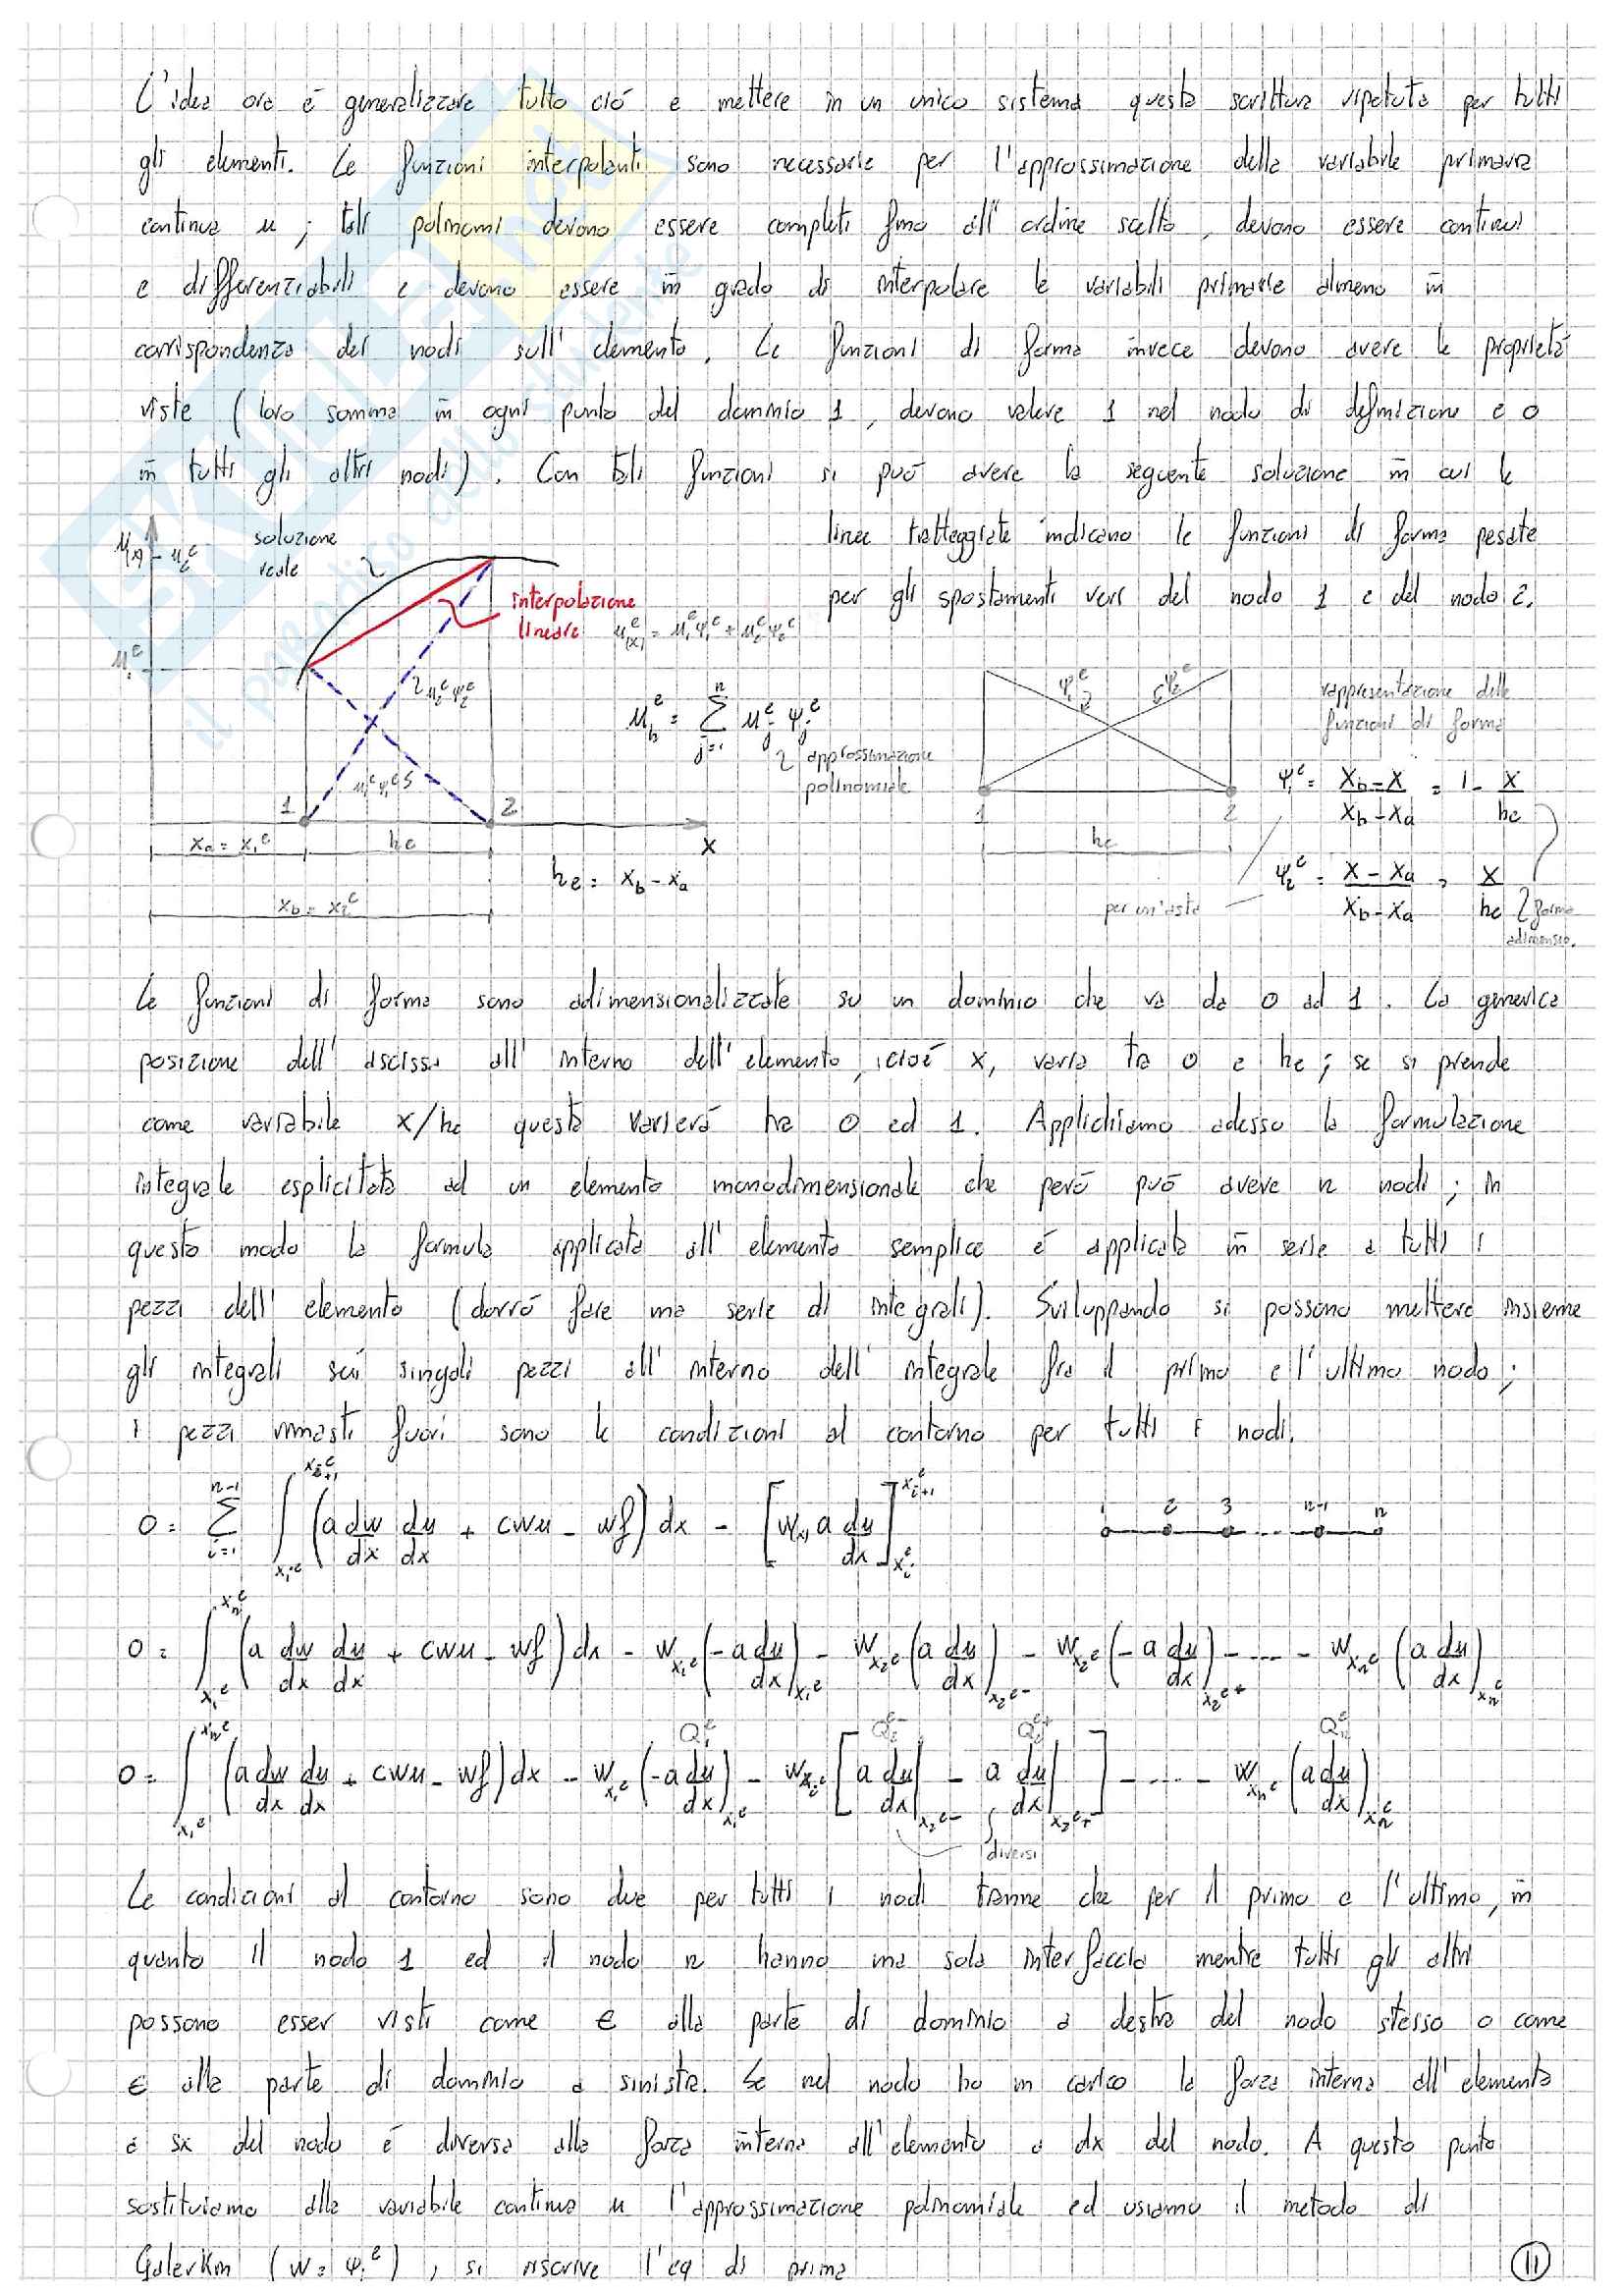 L'idea ora è generalizzare tutto ciò e mettere in un unico sistema questa scrittura ripetuta per tutti
gli elementi. Le funzioni interpolanti sono necessarie per l'approssimazione della variabile primaria
continua u ; tali polinomi devono essere completi fino all' ordine scelto, devono essere continui
e differenziabili e devono essere in grado di interpolare le variabili primarie almeno in
corrispondenza dei nodi sull' elemento. Le funzioni di forma invece devono avere le proprietà
viste ( loro somma in ogni punto del dominio 1 , devono valere 1 nel nodo di definizione e 0
in tutti gli altri nodi ) . Con tali funzioni si può avere la seguente soluzione in cui le
linee tratteggiate indicano le funzioni di forma pesate
per gli spostamenti veri del nodo 1 e del nodo 2.
u(x) u₂ᵉ
soluzione
reale
interpolazione
lineare u(x)ᵉ = u₁ᵉψ₁ᵉ + u₂ᵉψ₂ᵉ
u₁ᵉ
u₂ᵉψ₂ᵉ
u₁ᵉψ₁ᵉ
1 2
xa = x₁ᵉ he x
he = xb - xa
xb = x₂ᵉ
uhᵉ = Σ_{j=1}^{n} ujᵉ ψjᵉ
approssimazione
polinomiale
ψ₁ᵉ ψ₂ᵉ
1 2
he
rappresentazione delle
funzioni di forma
ψ₁ᵉ = (xb - x)/(xb - xa) = 1 - x/he
ψ₂ᵉ = (x - xa)/(xb - xa) = x/he
forma
adimensio.
per un'asta
Le funzioni di forma sono adimensionalizzate su un dominio che va da 0 ad 1 . La generica
posizione dell' ascissa all' interno dell' elemento, cioè x, varia tra 0 e he ; se si prende
come variabile x/he questa varierà tra 0 ed 1. Applichiamo adesso la formulazione
integrale esplicitata ad un elemento monodimensionale che però può avere n nodi ; in
questo modo la formula applicata all' elemento semplice è applicata in serie a tutti i
pezzi dell' elemento ( dovrò fare una serie di integrali ). Sviluppando si possono mettere insieme
gli integrali sui singoli pezzi all' interno dell' integrale fra il primo e l'ultimo nodo ;
i pezzi rimasti fuori sono le condizioni al contorno per tutti i nodi.
0 = Σ_{i=1}^{n-1} ∫_{xiᵉ}^{xi+1ᵉ} (a dw/dx du/dx + cwu - wf) dx - [w(x) a du/dx]_{xiᵉ}^{xi+1ᵉ}
1 2 3 ... n-1 n
0 = ∫_{x₁ᵉ}^{xnᵉ} (a dw/dx du/dx + cwu - wf) dx - w_{x₁ᵉ} (-a du/dx)_{x₁ᵉ} - w_{x₂ᵉ} (a du/dx)_{x₂ᵉ-} - w_{x₂ᵉ} (-a du/dx)_{x₂ᵉ+} - ... - w_{xnᵉ} (a du/dx)_{xnᵉ}
Q₁ᵉ Q₂ᵉ⁻ Q₂ᵉ⁺ Qnᵉ
0 = ∫_{x₁ᵉ}^{xnᵉ} (a dw/dx du/dx + cwu - wf) dx - w_{x₁ᵉ} (-a du/dx)_{x₁ᵉ} - w_{x₂ᵉ} [a du/dx|_{x₂ᵉ-} - a du/dx|_{x₂ᵉ+}] - ... - w_{xnᵉ} (a du/dx)_{xnᵉ}
diversi
Le condizioni al contorno sono due per tutti i nodi tranne che per il primo e l'ultimo, in
quanto il nodo 1 ed il nodo n hanno una sola interfaccia mentre tutti gli altri
possono esser visti come ∈ alla parte di dominio a destra del nodo stesso o come
∈ alla parte di dominio a sinistra. Se nel nodo ho un carico la forza interna all' elemento
a sx del nodo è diversa alla forza interna all'elemento a dx del nodo. A questo punto
sostituiamo alla variabile continua u l'approssimazione polinomiale ed usiamo il metodo di
Galerkin ( w = ψiᵉ ) , si riscrive l'eq di prima
11